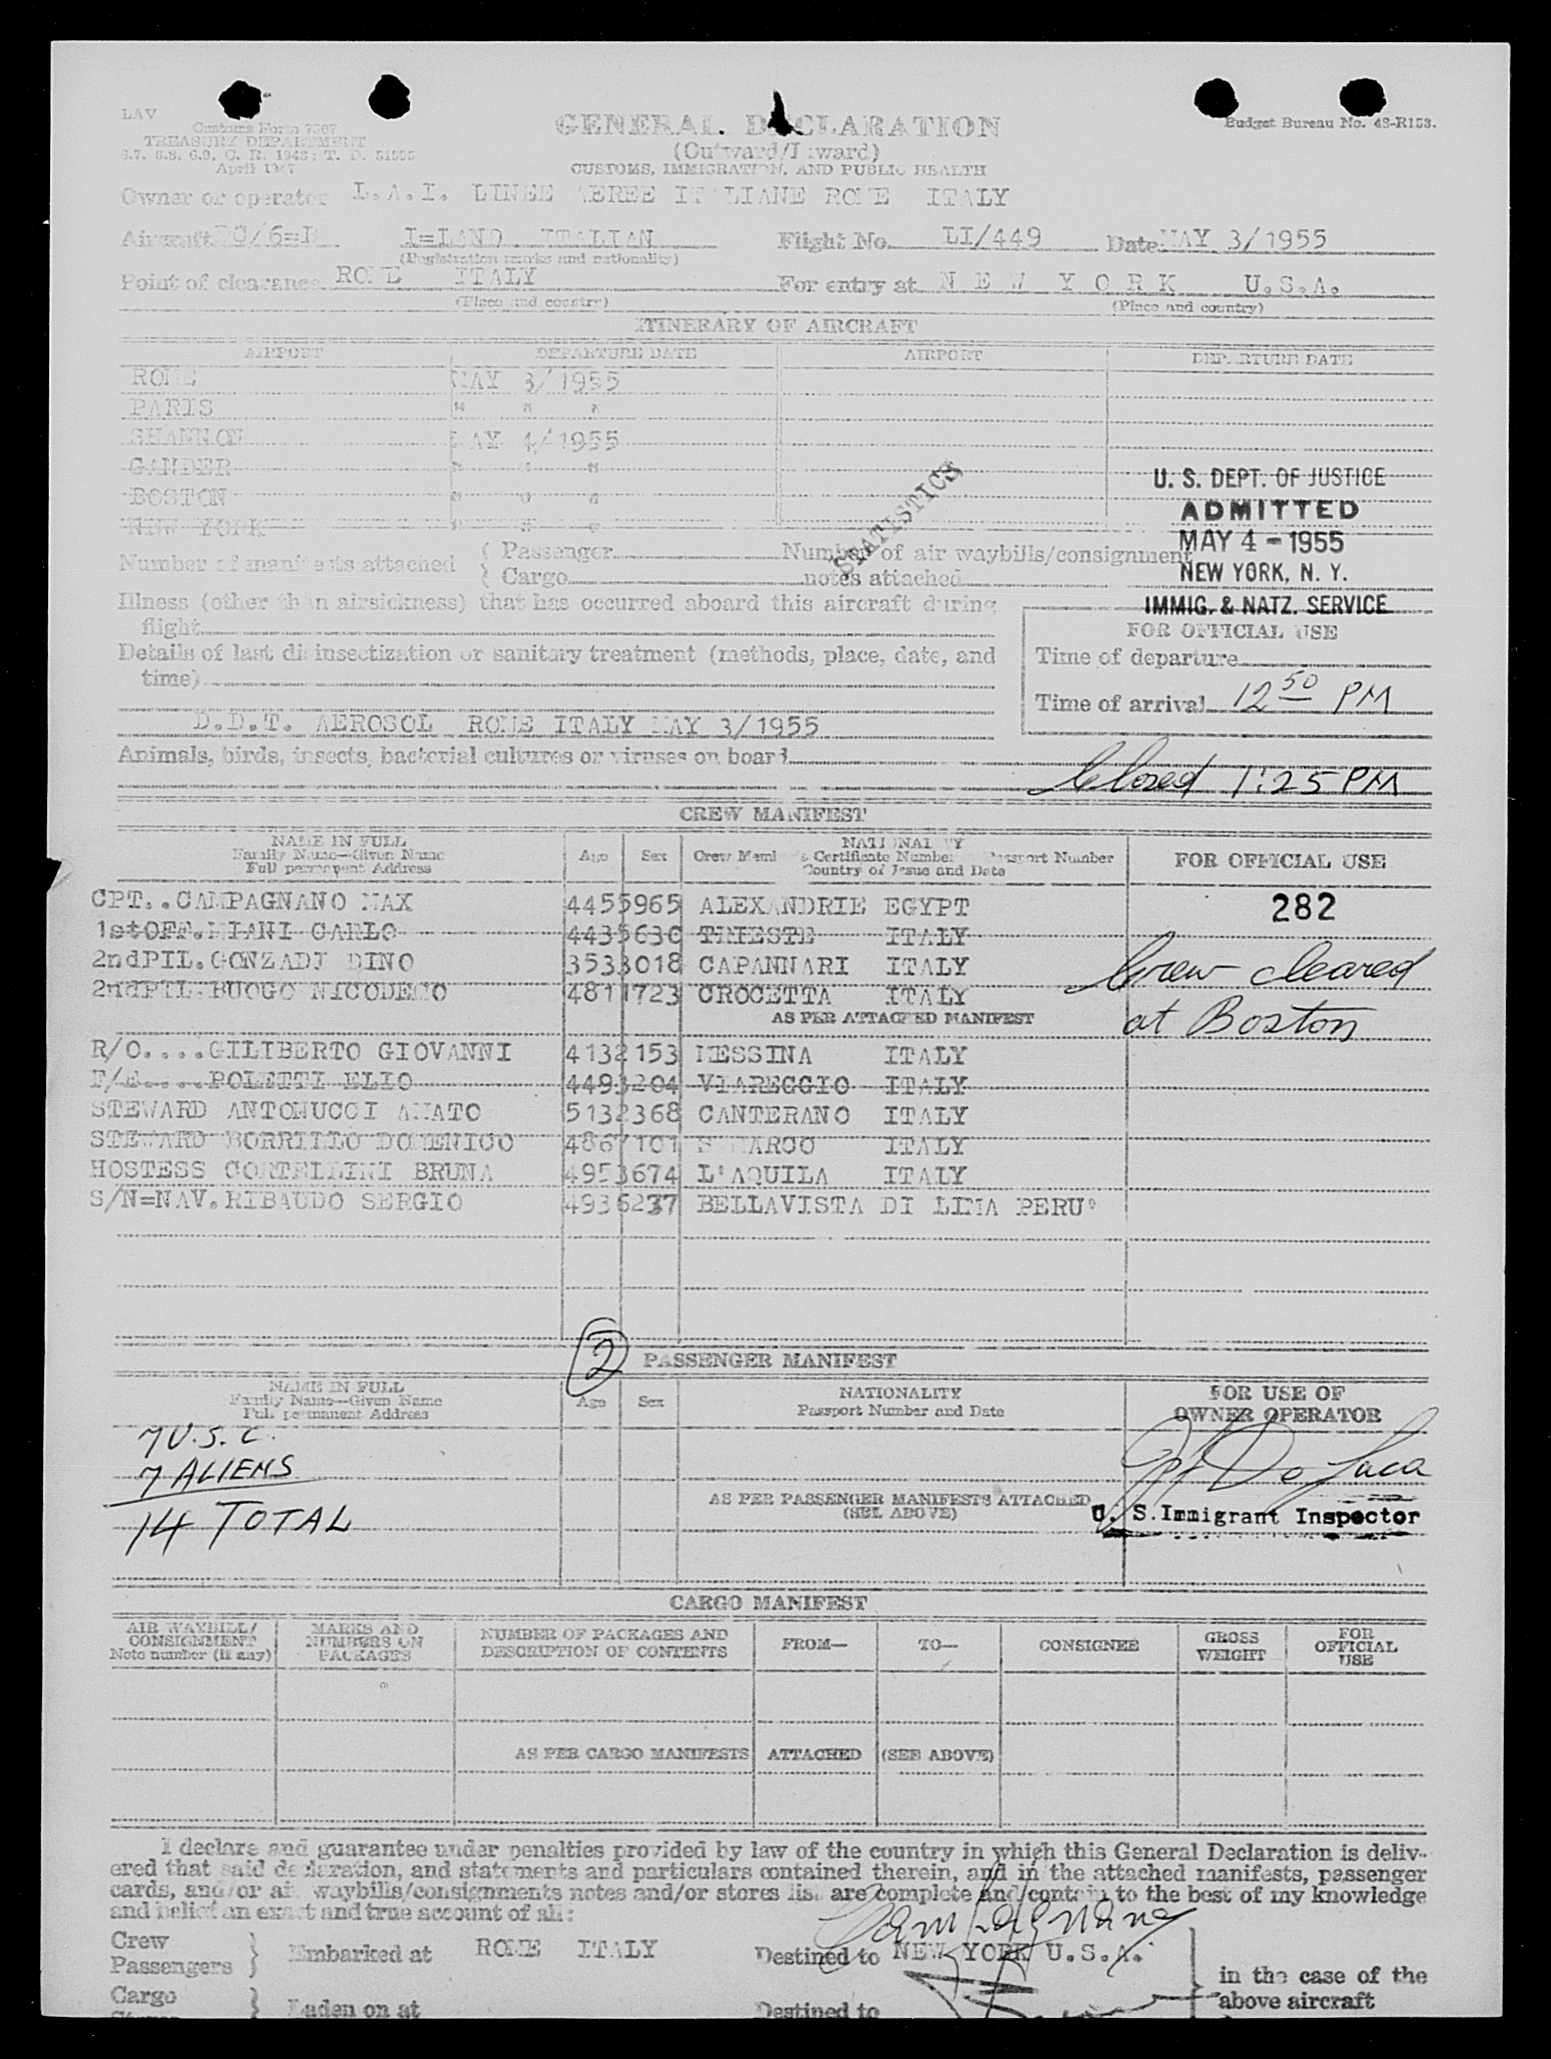 LAV
Customs Form 7507
TREASURY DEPARTMENT
6.7, 6.8, 6.9, C. R. 1943; T. D. 51595
April 1947
GENERAL DECLARATION
(Outward/Inward)
CUSTOMS, IMMIGRATION, AND PUBLIC HEALTH
Budget Bureau No. 48-R153.
Owner or operator L.A.I. LINEE AEREE ITALIANE ROME ITALY
Aircraft DC/6=B I=LAND ITALIAN Flight No. LI/449 Date MAY 3/1955
(Registration marks and nationality)
Point of clearance ROME ITALY For entry at N E W Y O R K U.S.A.
(Place and country) (Place and country)
ITINERARY OF AIRCRAFT
AIRPORT DEPARTURE DATE AIRPORT DEPARTURE DATE
ROME MAY 3/1955
PARIS " " "
SHANNON MAY 4/1955
GANDER " " "
BOSTON " " "
NEW YORK " " "
STATISTICS
U. S. DEPT. OF JUSTICE
ADMITTED
MAY 4 - 1955
NEW YORK, N. Y.
IMMIG. & NATZ. SERVICE
Number of manifests attached { Passenger Number of air waybills/consignment
{ Cargo notes attached
Illness (other than airsickness) that has occurred aboard this aircraft during
flight
Details of last disinsectization or sanitary treatment (methods, place, date, and
time)
D.D.T. AEROSOL ROME ITALY MAY 3/1955
FOR OFFICIAL USE
Time of departure
Time of arrival 12 50 PM
Animals, birds, insects, bacterial cultures or viruses on board
Closed 1:25 PM
CREW MANIFEST
NAME IN FULL
Family Name—Given Name
Full permanent Address
Age Sex
NATIONALITY
Crew Member's Certificate Number Passport Number
Country of Issue and Date
FOR OFFICIAL USE
CPT..CAMPAGNANO MAX 4455965 ALEXANDRIE EGYPT
282
1stOFF.MIANI CARLO 4435630 TRIESTE ITALY
2ndPIL.GONZADI DINO 3533018 CAPANNARI ITALY
Crew cleared
2ndPIL.BUOGO NICODEMO 4811723 CROCETTA ITALY
AS PER ATTACHED MANIFEST
at Boston
R/O....GILIBERTO GIOVANNI 4132153 MESSINA ITALY
F/E....POLETTI ELIO 4493204 VIAREGGIO ITALY
STEWARD ANTONUCCI AMATO 5132368 CANTERANO ITALY
STEWARD BORRILLO DOMENICO 4867101 S.MARCO ITALY
HOSTESS CORTELLINI BRUNA 4953674 L'AQUILA ITALY
S/N=NAV.RIBAUDO SERGIO 4936237 BELLAVISTA DI LIMA PERU°
2
PASSENGER MANIFEST
NAME IN FULL
Family Name—Given Name
Full permanent Address
Age Sex
NATIONALITY
Passport Number and Date
FOR USE OF
OWNER OPERATOR
7 U.S.C.
7 ALIENS
14 TOTAL
AS PER PASSENGER MANIFESTS ATTACHED
(SEE ABOVE)
De Luca
U. S. Immigrant Inspector
CARGO MANIFEST
AIR WAYBILL/
CONSIGNMENT
Note number (if any)
MARKS AND
NUMBERS ON
PACKAGES
NUMBER OF PACKAGES AND
DESCRIPTION OF CONTENTS
FROM—
TO—
CONSIGNEE
GROSS
WEIGHT
FOR
OFFICIAL
USE
AS PER CARGO MANIFESTS ATTACHED (SEE ABOVE)
I declare and guarantee under penalties provided by law of the country in which this General Declaration is deliv-
ered that said declaration, and statements and particulars contained therein, and in the attached manifests, passenger
cards, and/or air waybills/consignments notes and/or stores list are complete and contain to the best of my knowledge
and belief an exact and true account of all:
Campagnano
Crew
Passengers } Embarked at ROME ITALY Destined to NEW YORK U.S.A.
in the case of the
above aircraft
Cargo
Stores } Laden on at Destined to